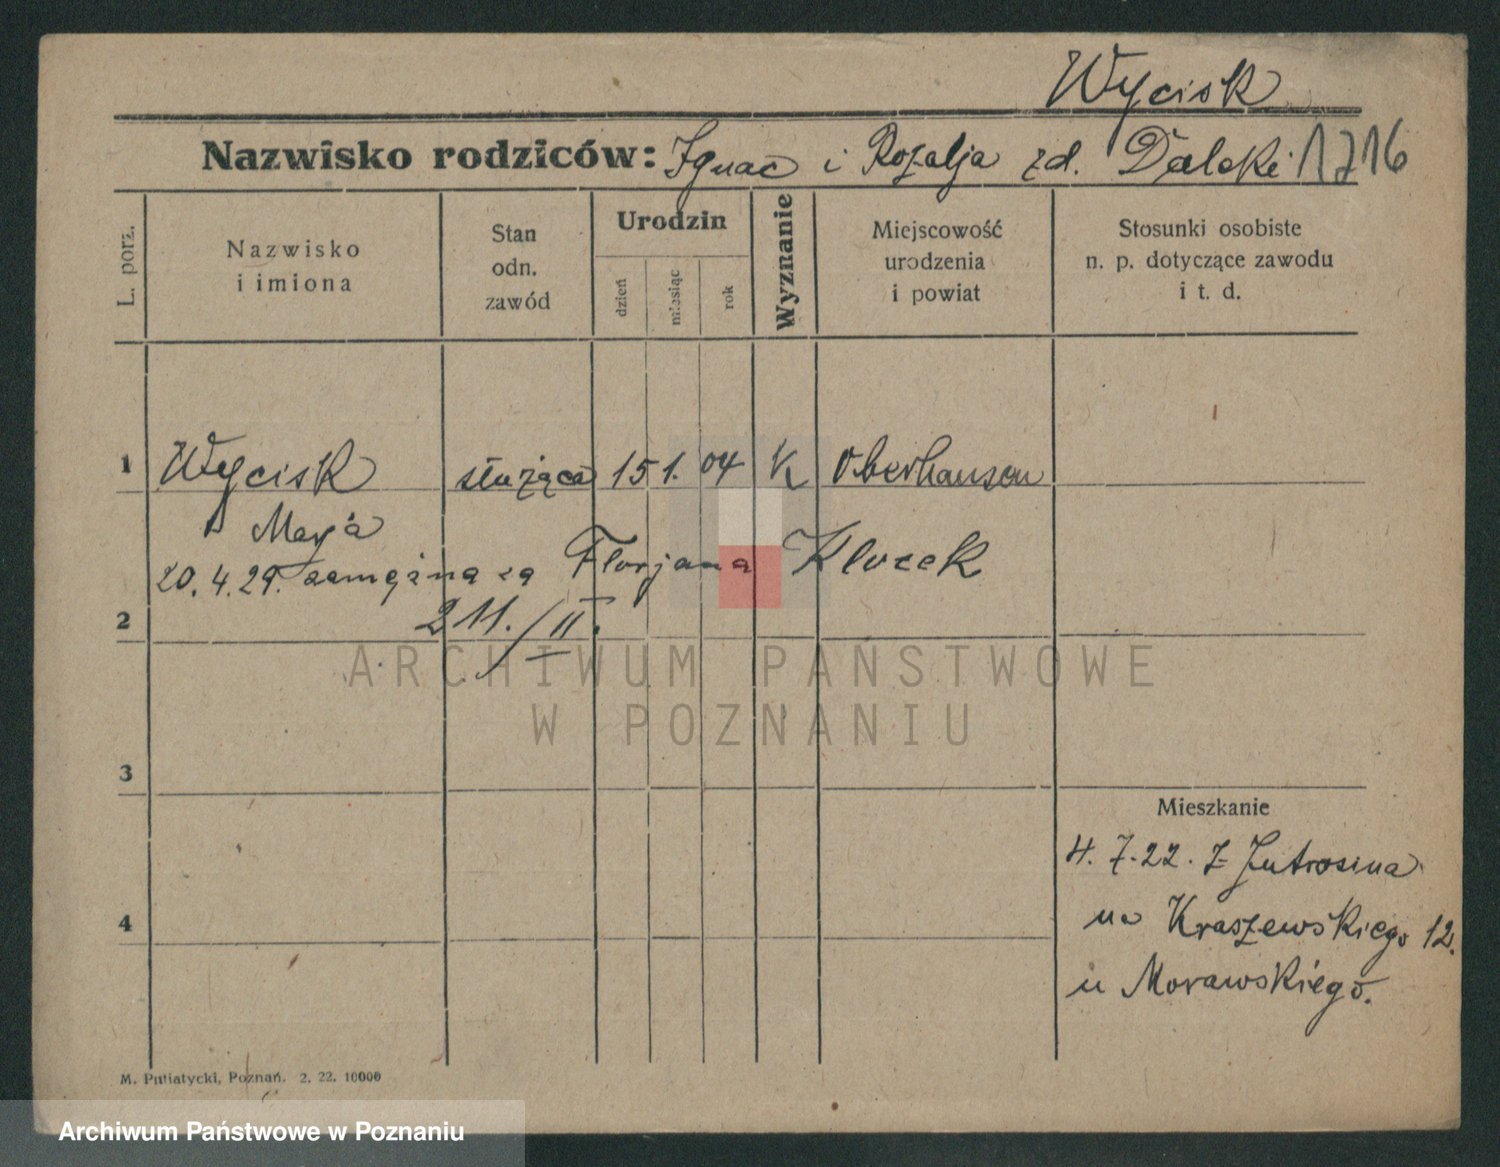 Wycisk
Nazwisko rodziców: Ignac i Rozalja zd. Dalcki 1716
L. porz.
Nazwisko i imiona
Stan odn. zawód
Urodzin
dzień
miesiąc
rok
Wyznanie
Miejscowość urodzenia i powiat
Stosunki osobiste n. p. dotyczące zawodu i t. d.
1 Wycisk służąca 15 1. 04 K Oberhausen
Marja
20.4.29. zamężna za Florjana Klocek
2 211./II.
ARCHIWUM PAŃSTWOWE
W POZNANIU
3
Mieszkanie
4. 7. 22. z Jutrosina
na Kraszewskiego 12.
4
u Morawskiego.
M. Putiatycki, Poznań. 2. 22. 10000
Archiwum Państwowe w Poznaniu